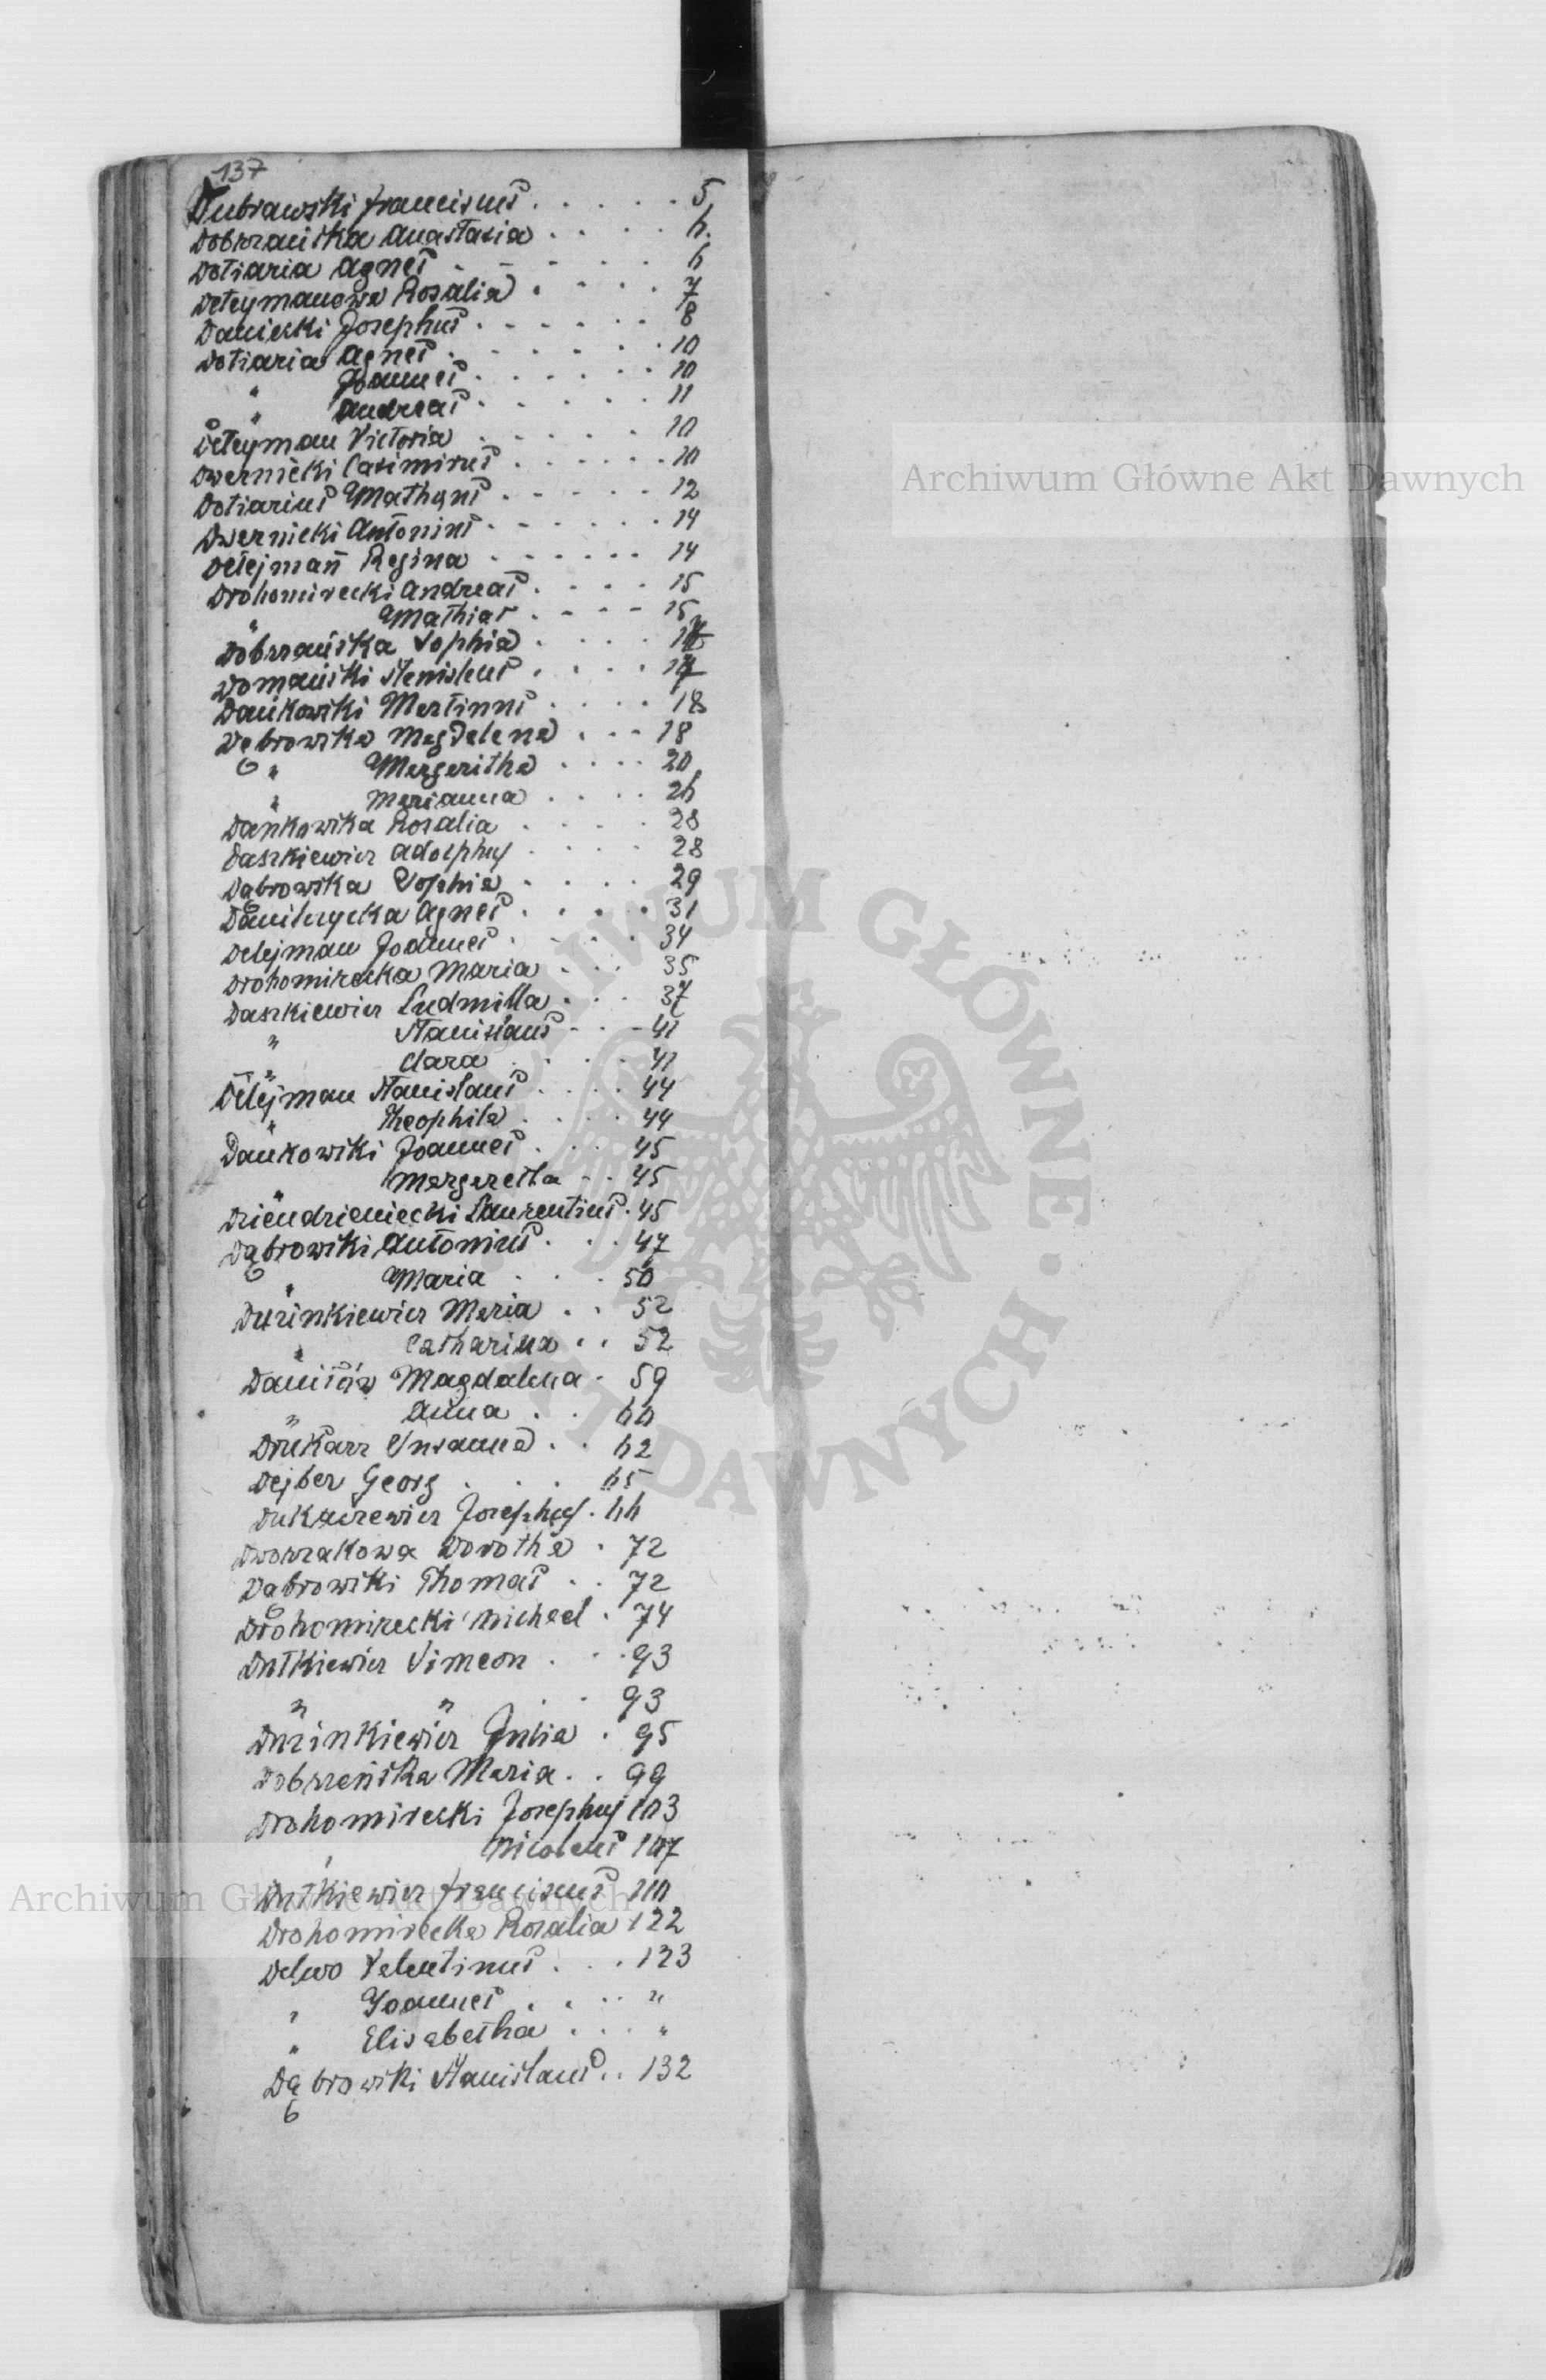 137
Dubrawski Franciscus . . . . . 5
Dobrzańska Anastasia . . . . 6.
Dotiaria Agnes . . . . . 6
Deteymanowa Rosalia . . . . 7
Daniecki Josephus . . . . . . 8
Dotiaria Agnes . . . . . . 10
" Joannes . . . . . . 10
" Andreas . . . . . 11
Deteyman Victoria . . . . . 10
Dwernicki Casimirus . . . . . . 10
Dotiarius Mathæus . . . . . 12
Dwernicki Antonius . . . . . . 14
Detejman Regina . . . . . . 14
Drohomirecki Andreas . . . . 15
" Mathias . . . . 15
Dobrzańska Sophia . . . . 17
Domański Stanislaus . . . . 17
Dańkowski Martinus . . . . 18
Dąbrowska Magdalena . . . 18
" Margaritha . . . . 20
" Marianna . . . . 26
Dańkowska Rosalia . . . . 28
Daszkiewicz Adolphus . . . . 28
Dąbrowska Sophia . . . . 29
Danilczycka Agnes . . . . 31
Detejman Joannes . . . . 34
Drohomirecka Maria . . . 35
Daszkiewicz Ludmilla . . . 37
" Stanislaus . . . 41
" Clara . . . . 41
Detejman Stanislaus . . . . 44
" Theophila . . . . 44
Dańkowski Joannes . . . 45
" Margaretta . . 45
Dziendzieniecki Laurentius . 45
Dąbrowski Antonius . . . 47
" Maria . . . . 50
Duzinkiewicz Maria . . 52
" Catharina . . 52
Daniłów Magdalena . 59
" Anna . . 60
Drukarz Susanna . . 62
Dejber Georg . . . 65
Josephus . 66
Dworzakowa Dorothea . 72
Dąbrowski Thomas . . 72
Drohomirecki Michael . 74
Dutkiewicz Simeon . . . 93
" " . . 93
Duzinkiewicz Julia . 95
Dobrzeńska Maria . . 99
Drohomirecki Josephus 103
" Nicolaus 107
Dutkiewicz Franciscus 110
Drohomirecka Rosalia 122
Valentinus . . . 123
" Joannes . . . . "
" Elisabetha . . . "
Dąbrowski Stanislaus . . 132
Archiwum Główne Akt Dawnych
ARCHIWUM GŁÓWNE AKT DAWNYCH
Archiwum Główne Akt Dawnych